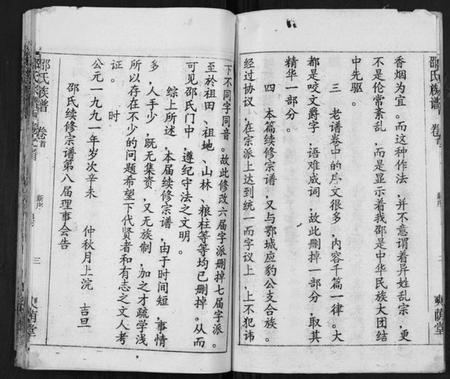 邵氏族谱 卷首
爽荫堂
香烟为宜。而这种作法，并不意谓着异姓乱宗，更
不是伦常紊乱，而是显示着我邵是中华民族大团结
中先驱。
三 老谱卷中的序文很多，内容千篇一律。大
都是咬文爵字，语难成词，故此删掉一部分，取其
精华一部分。
四 本篇续修宗谱，又与鄂城应豹公支合族。
经过协议，在宗派上达到统一而字议上，上不犯讳
下不同字同音。故此修改六届字派删掉七届字派。
至於祖田、祖地、山林、粮柱等等均已删掉。从而
可见邵氏门中，遵纪守法之文明。
综上所述，本届续修宗谱，由于时间短，事情
多，人手少，既无集资，又无族制，加之才疏学浅
所以存在不少的问题希望下代贤者和有志之文人考
证。
时
公元一九九一年岁次辛未 仲秋月上浣 吉旦
邵氏续修宗谱第八届理事会告
邵氏族谱 卷首
三
爽荫堂